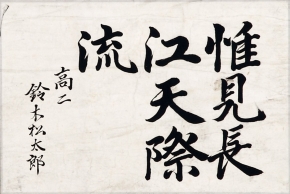 惟見長
江天際
流
高二
鈴木松太郎